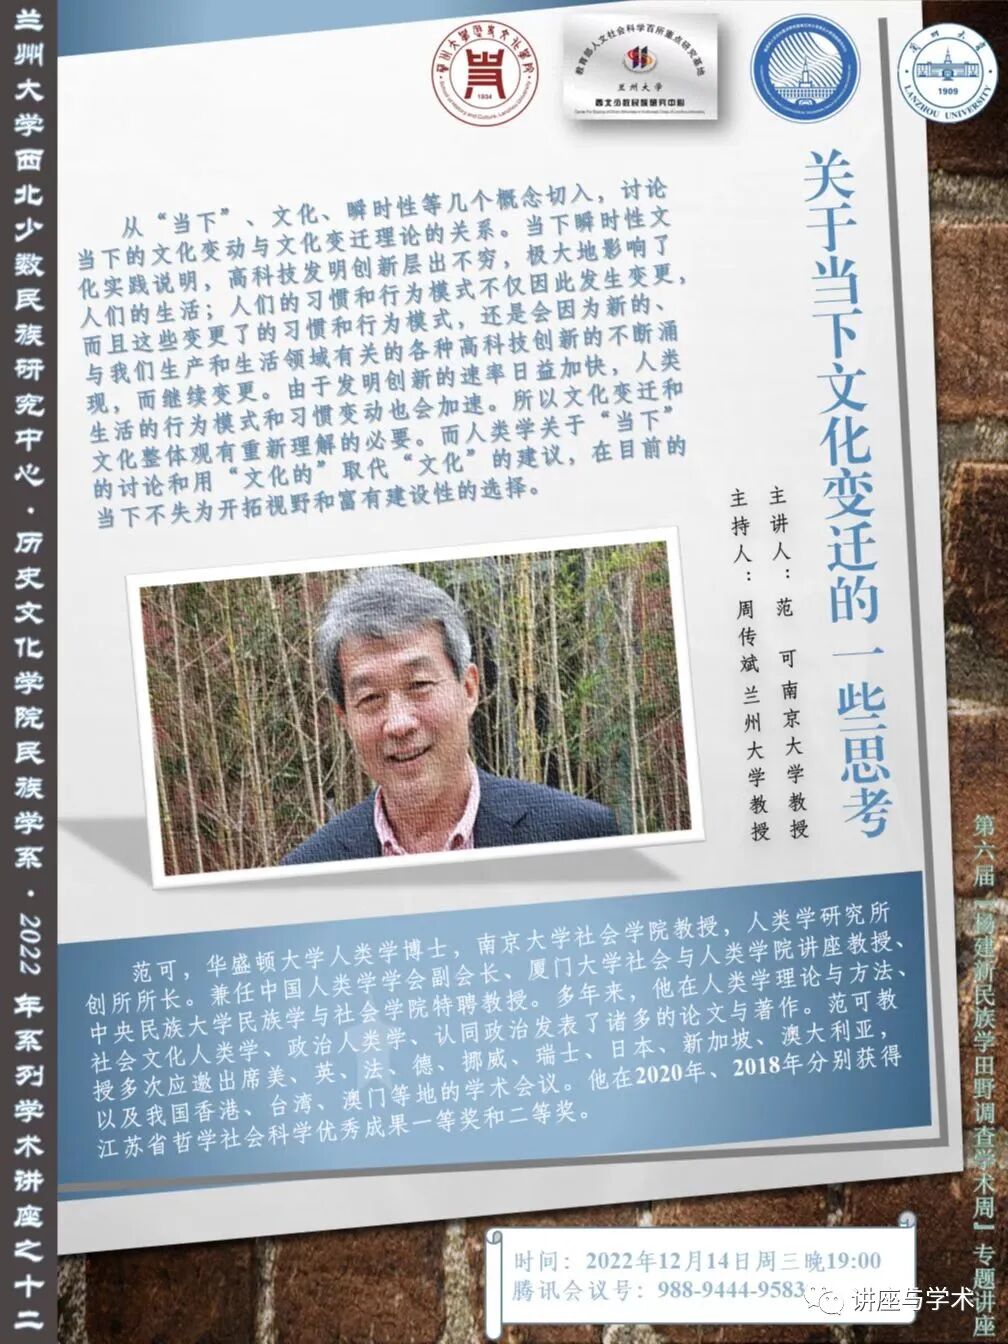 兰州大学西北少数民族研究中心·历史文化学院民族学系·2022年系列学术讲座之十二
1934
教育部人文社会科学百所重点研究基地
兰州大学
西北少数民族研究中心
兰州大学
1909
LANZHOU UNIVERSITY
关于当下文化变迁的一些思考
主讲人：范 可 南京大学教授
主持人：周传斌 兰州大学教授
从“当下”、文化、瞬时性等几个概念切入，讨论
当下的文化变动与文化变迁理论的关系。当下瞬时性文
化实践说明，高科技发明创新层出不穷，极大地影响了
人们的生活；人们的习惯和行为模式不仅因此发生变更，
而且这些变更了的习惯和行为模式，还是会因为新的、
与我们生产和生活领域有关的各种高科技创新的不断涌
现，而继续变更。由于发明创新的速率日益加快，人类
生活的行为模式和习惯变动也会加速。所以文化变迁和
文化整体观有重新理解的必要。而人类学关于“当下”
的讨论和用“文化的”取代“文化”的建议，在目前的
当下不失为开拓视野和富有建设性的选择。
范可，华盛顿大学人类学博士，南京大学社会学院教授，人类学研究所
创所所长。兼任中国人类学学会副会长、厦门大学社会与人类学院讲座教授、
中央民族大学民族学与社会学院特聘教授。多年来，他在人类学理论与方法、
社会文化人类学、政治人类学、认同政治发表了诸多的论文与著作。范可教
授多次应邀出席美、英、法、德、挪威、瑞士、日本、新加坡、澳大利亚，
以及我国香港、台湾、澳门等地的学术会议。他在2020年、2018年分别获得
江苏省哲学社会科学优秀成果一等奖和二等奖。
第六届『杨建新民族学田野调查学术周』专题讲座
时间：2022年12月14日周三晚19:00
腾讯会议号：988-9444-9583
讲座与学术